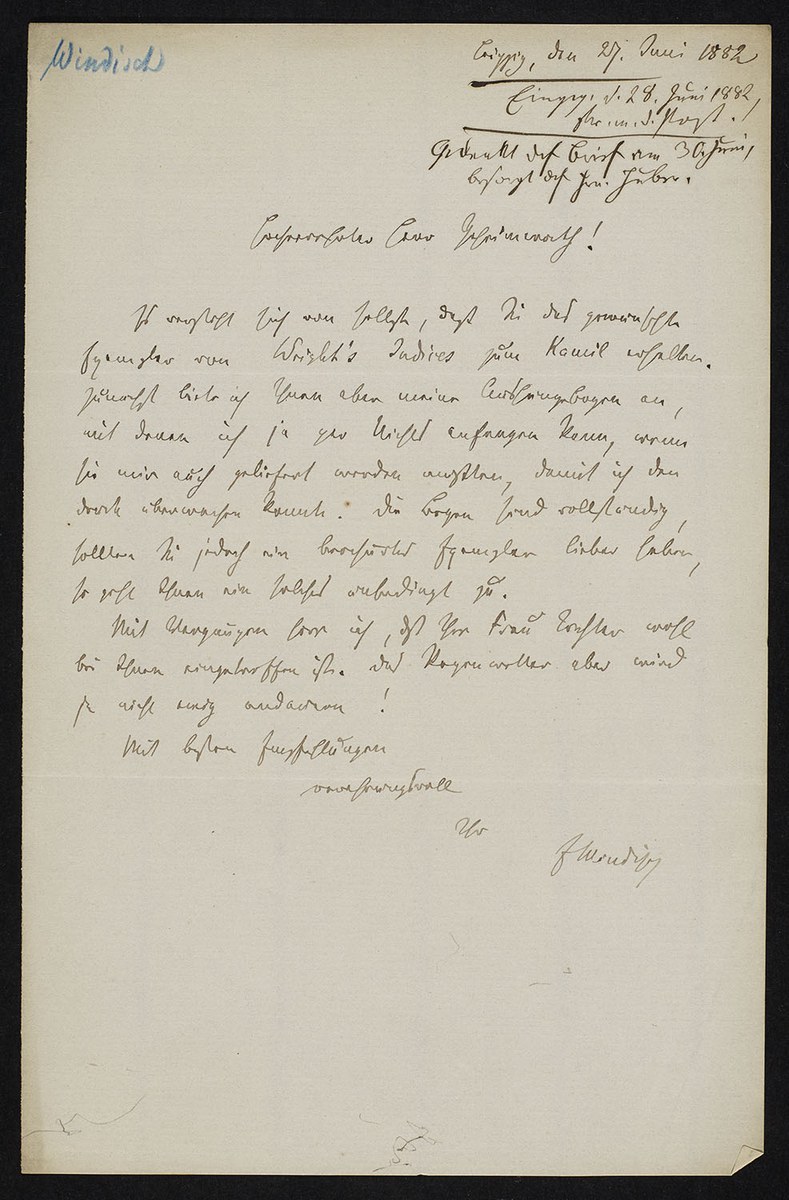 Windisch
Leipzig, den 27. Juni 1882
Eingeg. d. 28. Juni 1882,
m. d. Post.
Gedankt dch Brief am 30. Juni,
besorgt dch Hrn. Huber.
Hochverehrter Herr Geheimrath!
Es versteht sich von selbst, daß Sie das gewünschte
Exemplar von Wright's Indices zum Kamil erhalten.
Zunächst biete ich Ihnen aber meine Aushängebogen an,
mit denen ich ja gar Nichts anfangen kann, wenn
sie mir auch geliefert werden mußten, damit ich den
Druck überwachen konnte. Die Bogen sind vollständig,
sollten Sie jedoch ein brochirtes Exemplar lieber haben,
so geht Ihnen ein solches unbedingt zu.
Mit Vergnügen höre ich, dß Ihre Frau Tochter wohl
bei Ihnen eingetroffen ist. Das Regenwetter aber wird
ja nicht ewig andauern!
Mit besten Empfehlungen
verehrungsvoll
Ihr
EWindisch